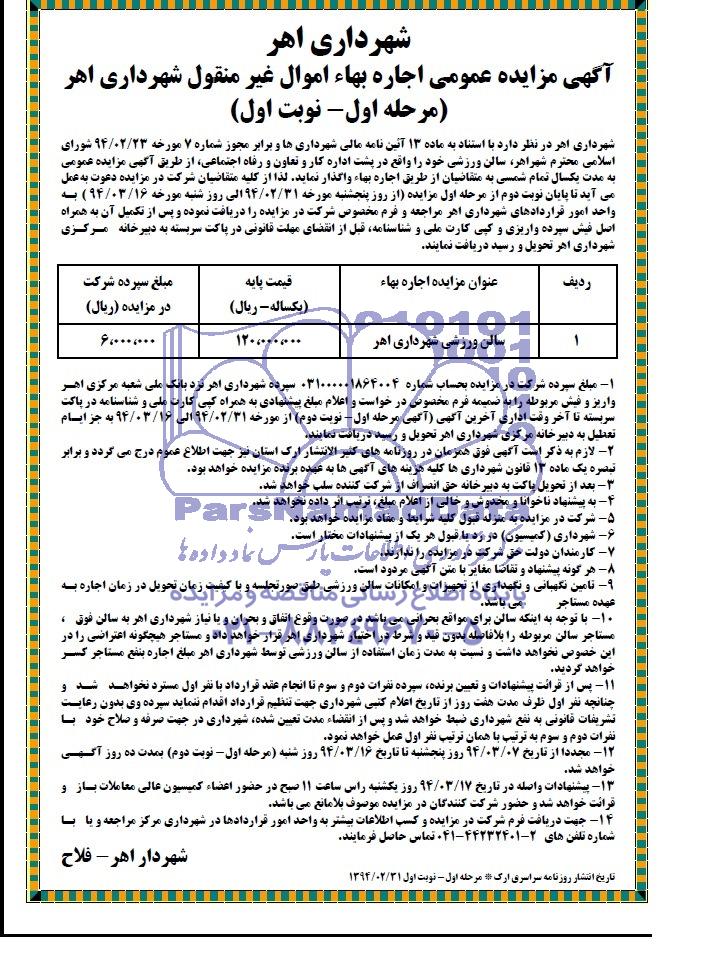 شهرداری اهر
آگهی مزایده عمومی اجاره بهاء اموال غیر منقول شهرداری اهر
(مرحله اول- نوبت اول)
شهرداری اهر در نظر دارد با استناد به ماده ۱۳ آئین نامه مالی شهرداری ها و برابر مجوز شماره ۷ مورخه ۹۴/۰۲/۲۳ شورای
اسلامی محترم شهراهر، سالن ورزشی خود را واقع در پشت اداره کار و تعاون و رفاه اجتماعی، از طریق آگهی مزایده عمومی
به مدت یکسال تمام شمسی به متقاضیان از طریق اجاره بهاء واگذار نماید. لذا از کلیه متقاضیان شرکت در مزایده دعوت به عمل
می آید تا پایان نوبت دوم از مرحله اول مزایده (از روز پنجشنبه مورخه ۹۴/۰۲/۳۱ الی روز شنبه مورخه ۹۴/۰۳/۱۶ ) به
واحد امور قراردادهای شهرداری اهر مراجعه و فرم مخصوص شرکت در مزایده را دریافت نموده و پس از تکمیل آن به همراه
اصل فیش سپرده واریزی و کپی کارت ملی و شناسنامه، قبل از انقضای مهلت قانونی در پاکت سربسته به دبیرخانه مرکزی
شهرداری اهر تحویل و رسید دریافت نمایند.
ردیف عنوان مزایده اجاره بهاء قیمت پایه (یکساله- ریال) مبلغ سپرده شرکت در مزایده (ریال)
۱ سالن ورزشی شهرداری اهر ۱۲۰،۰۰۰،۰۰۰ ۶،۰۰۰،۰۰۰
۱- مبلغ سپرده شرکت در مزایده بحساب شماره ۰۳۱۰۰۰۰۰۱۸۶۴۰۰۴ سپرده شهرداری اهر نزد بانک ملی شعبه مرکزی اهر
واریز و فیش مربوطه را به ضمیمه فرم مخصوص در خواست و اعلام مبلغ پیشنهادی به همراه کپی کارت ملی و شناسنامه در پاکت
سربسته تا آخر وقت اداری آخرین آگهی (آگهی مرحله اول- نوبت دوم) از مورخه ۹۴/۰۲/۳۱ الی ۹۴/۰۳/۱۶ به جز ایام
تعطیل به دبیرخانه مرکزی شهرداری اهر تحویل و رسید دریافت نمایند.
۲- لازم به ذکر است آگهی فوق همزمان در روزنامه های کثیر الانتشار ارک استان نیز جهت اطلاع عموم درج می گردد و برابر
تبصره یک ماده ۱۳ قانون شهرداری ها کلیه هزینه های آگهی ها به عهده برنده مزایده خواهد بود.
۳- بعد از تحویل پاکت به دبیرخانه حق انصراف از شرکت کننده سلب خواهد شد.
۴- به پیشنهاد ناخوانا و مخدوش و خالی از اعلام مبلغ، ترتیب اثر داده نخواهد شد.
۵- شرکت در مزایده به منزله قبول کلیه شرایط و مفاد مزایده خواهد بود.
۶- شهرداری (کمیسیون) در رد یا قبول هر یک از پیشنهادات مختار است.
۷- کارمندان دولت حق شرکت در مزایده را ندارند.
۸- هر گونه پیشنهاد و تقاضا مغایر با متن آگهی مردود است.
۹- تامین نگهبانی و نگهداری از تجهیزات و امکانات سالن ورزشی طبق صورتجلسه و با کیفیت زمان تحویل در زمان اجاره به
عهده مستاجر می باشد.
۱۰- با توجه به اینکه سالن برای مواقع بحرانی می باشد در صورت وقوع اتفاق و بحران و یا نیاز شهرداری اهر به سالن فوق ،
مستاجر سالن مربوطه را بلافاصله بدون قید و شرط در اختیار شهرداری اهر قرار خواهد داد و مستاجر هیچگونه اعتراضی را در
این خصوص نخواهد داشت و نسبت به مدت زمان استفاده از سالن ورزشی توسط شهرداری اهر مبلغ اجاره بنفع مستاجر کسر
خواهد گردید.
۱۱- پس از قرائت پیشنهادات و تعیین برنده، سپرده نفرات دوم و سوم تا انجام عقد قرارداد با نفر اول مسترد نخواهد شد و
چنانچه نفر اول ظرف مدت هفت روز از تاریخ اعلام کتبی شهرداری جهت تنظیم قرارداد اقدام ننماید سپرده وی بدون رعایت
تشریفات قانونی به نفع شهرداری ضبط خواهد شد و پس از انقضاء مدت تعیین شده، شهرداری در جهت صرفه و صلاح خود با
نفرات دوم و سوم به ترتیب با همان ترتیب نفر اول عمل خواهد نمود.
۱۲- مجددا از تاریخ ۹۴/۰۳/۰۷ روز پنجشنبه تا تاریخ ۹۴/۰۳/۱۶ روز شنبه (مرحله اول- نوبت دوم) بمدت ده روز آگهی
خواهد شد.
۱۳- پیشنهادات واصله در تاریخ ۹۴/۰۳/۱۷ روز یکشنبه راس ساعت ۱۱ صبح در حضور اعضاء کمیسیون عالی معاملات باز و
قرائت خواهد شد و حضور شرکت کنندگان در مزایده موصوف بلامانع می باشد.
۱۴- جهت دریافت فرم شرکت در مزایده و کسب اطلاعات بیشتر به واحد امور قراردادها در شهرداری مرکز مراجعه و یا با
شماره تلفن های ۲-۰۴۱-۴۴۲۳۲۴۰۱ تماس حاصل فرمایند.
شهردار اهر - فلاح
تاریخ انتشار روزنامه سراسری ارک * مرحله اول- نوبت اول ۱۳۹۴/۰۲/۳۱
ParsNamadData
پایگاه اطلاع رسانی مناقصه و مزایده